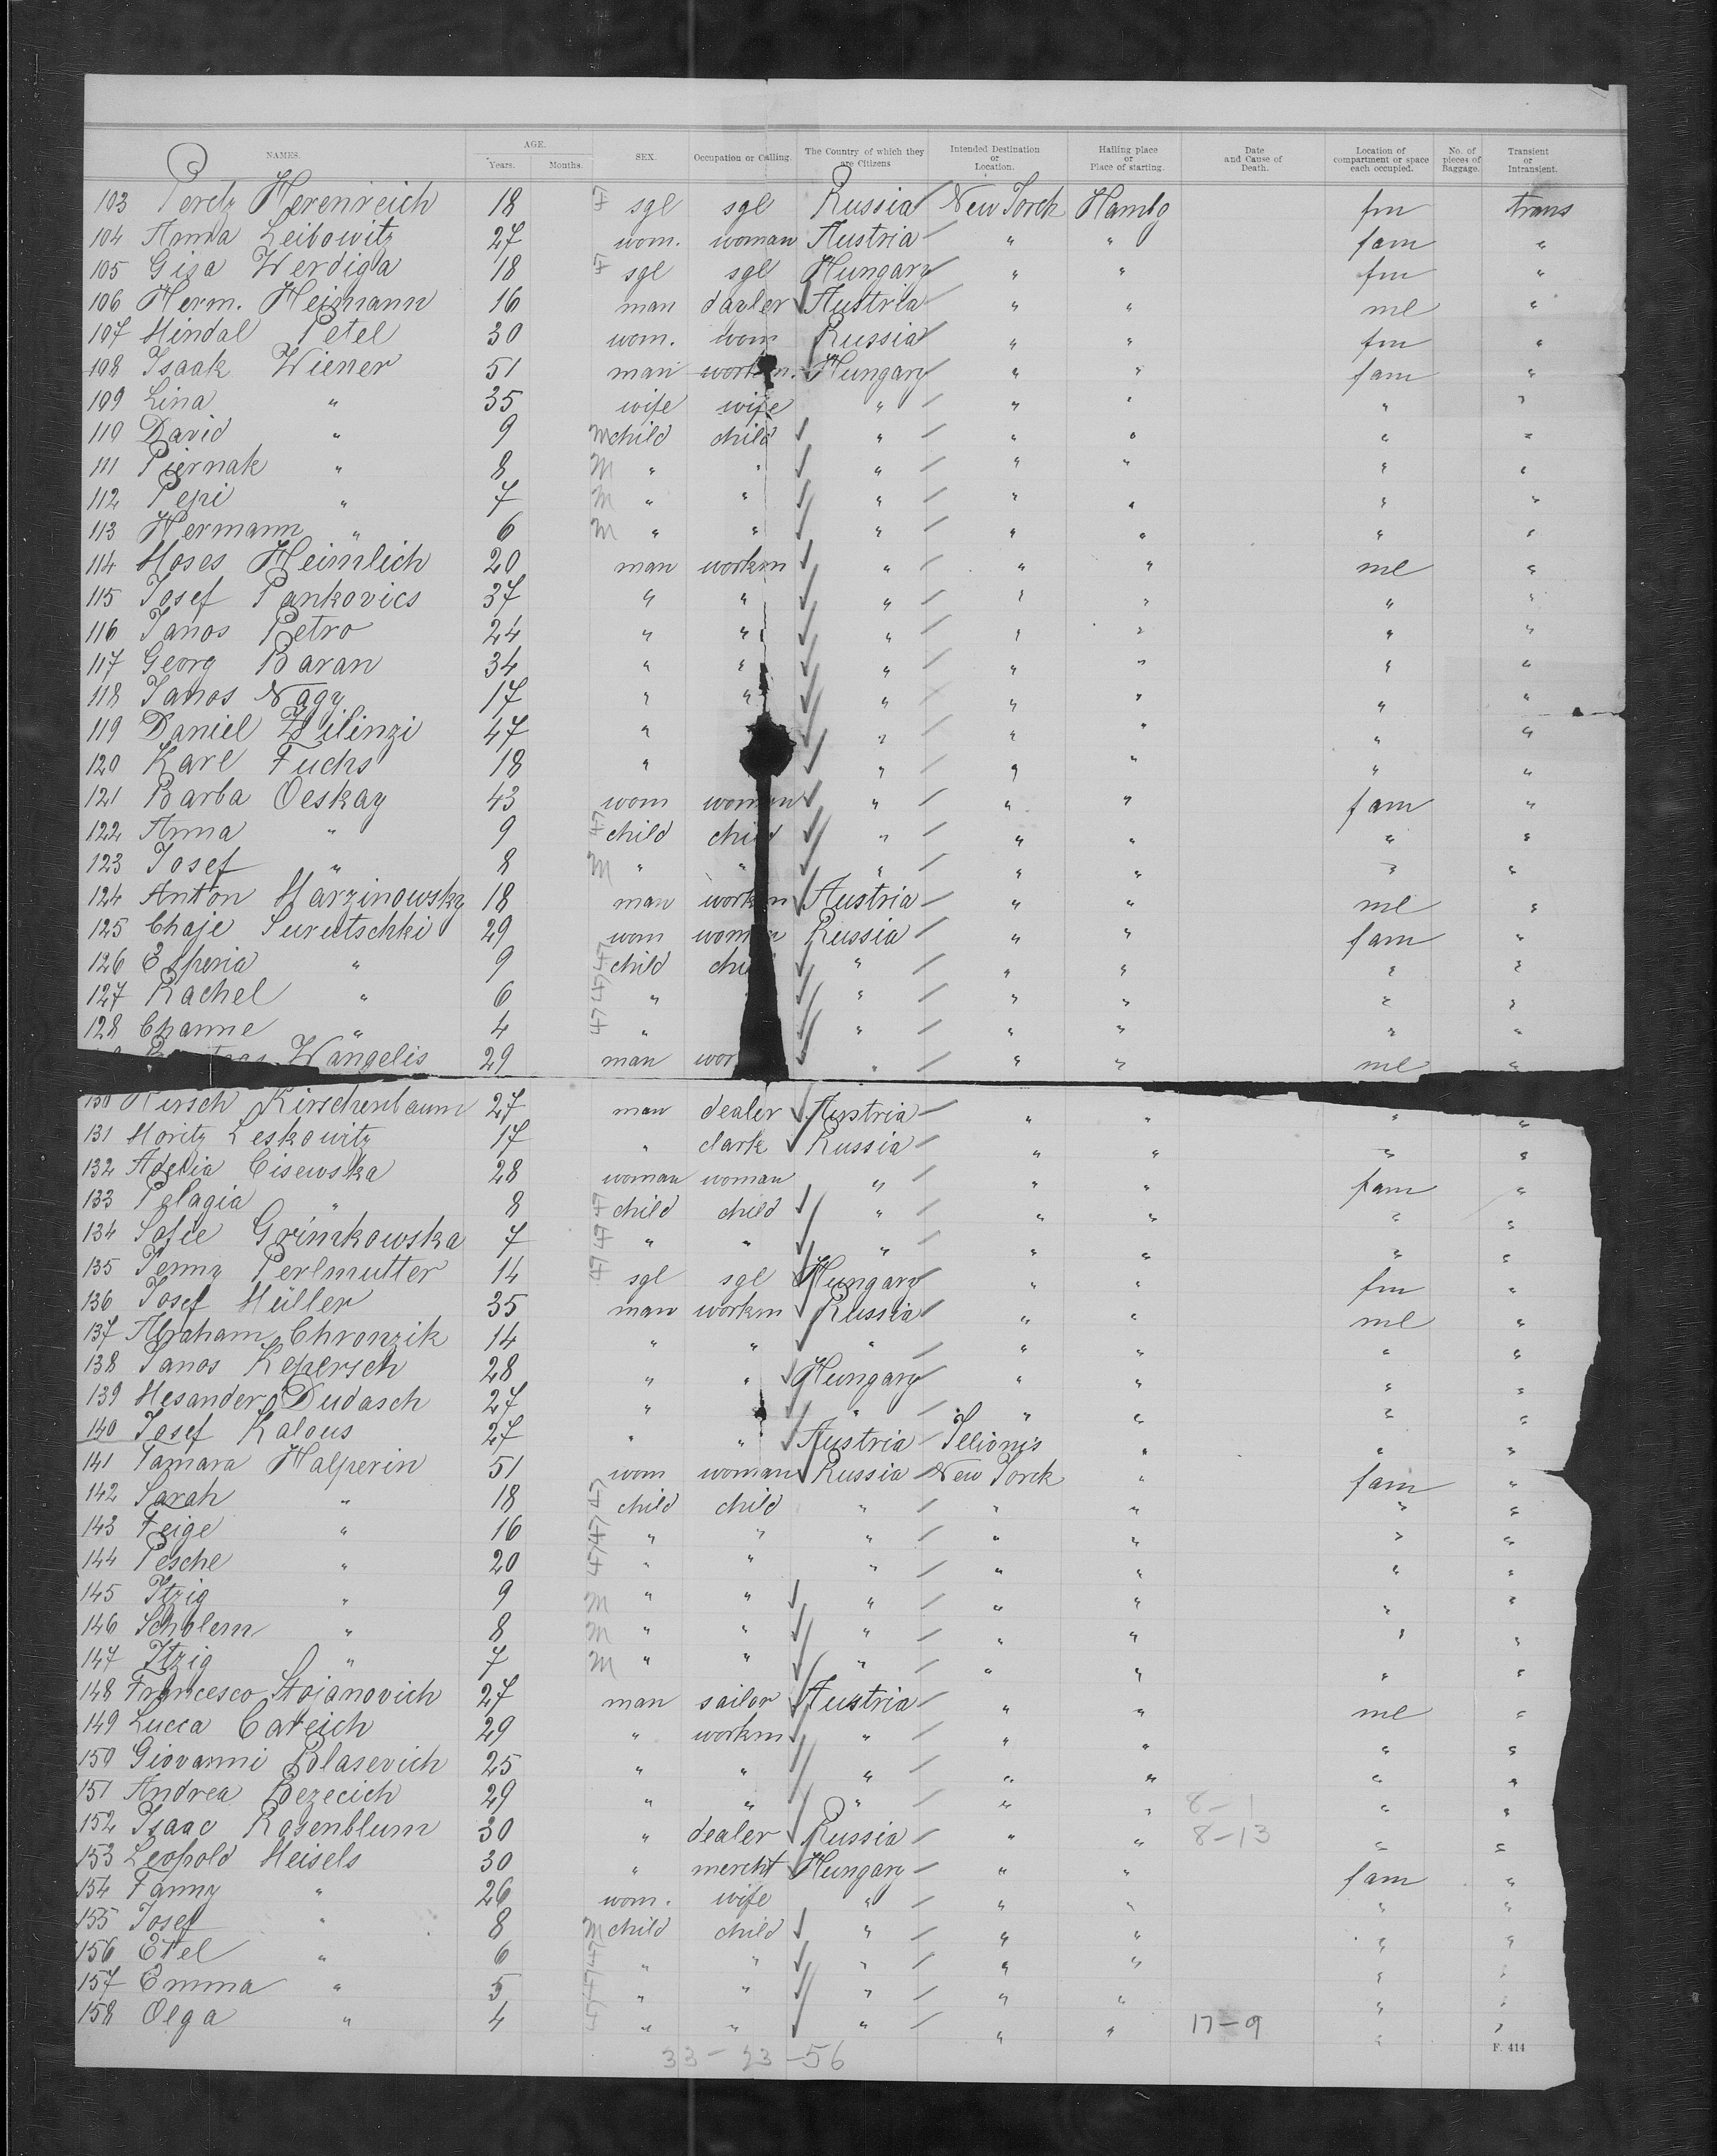 NAMES. AGE. Years. Months. SEX. Occupation or Calling. The Country of which they are Citizens Intended Destination or Location. Hailing place or Place of starting. Date and Cause of Death. Location of compartment or space each occupied. No. of pieces of Baggage. Transient or Intransient.
103 Peretz Herenreich 18 sgl sgl Russia New Yorck Hambg fm trans
104 Anna Leibowitz 27 wom. woman Austria " " fam "
105 Gisa Werdiga 18 sgl sgl Hungary " " fm "
106 Herm. Heimann 16 man dayler Austria " " ml "
107 Mindal Petel 30 wom. wom Russia " " fm "
108 Isaak Wiener 51 man workm. Hungary " " fam "
109 Lina " 35 wife wife " " " " "
110 David " 9 M child child " " " " "
111 Piernak " 8 M " " " " " " "
112 Pepi " 7 M " " " " " " "
113 Hermann " 6 M " " " " " " "
114 Moses Heimlich 20 man workm " " " ml "
115 Josef Pankovics 37 " " " " " " "
116 Janos Petro 24 " " " " " " "
117 Georg Baran 34 " " " " " " "
118 Janos Nagy 17 " " " " " " "
119 Daniel Zilinzi 47 " " " " " "
120 Karl Fuchs 18 " " " " " "
121 Barba Oeskay 43 wom woman " " " fam "
122 Anna " 9 child child " " " " "
123 Josef " 8 M " " " " " " "
124 Anton Marzinowsky 18 man workm Austria " " ml "
125 Chaje Surutschki 29 wom woman Russia " " fam "
126 " 9 child " " " " "
127 Rachel " 6 " " " " " "
128 Channe " 4 " " " " " "
Wangelis 29 man " " " ml "
130 Hirsch Kirschenbaum 27 man dealer Austria " " " "
131 Moritz Leskowitz 17 " clark Russia " " " "
132 Adelia Cisewska 28 woman woman " " " fam "
133 Pelagia " 8 child child " " " " "
134 Sofie Grimkowska 7 " " " " " " "
135 Jenny Perlmutter 14 sgl sgl Hungary " " fm "
136 Josef Müller 35 man workm Russia " " ml "
137 Abraham Chronzik 14 " " " " " " "
138 Janos Kepersch 28 " " Hungary " " " "
139 Mesander Dudasch 27 " " " " " "
140 Josef Kalous 27 " " Austria Illionis " " "
141 Tamara Halperin 51 wom woman Russia New Yorck " fam "
142 Sarah " 18 child child " " " " "
143 Feige " 16 " " " " " " "
144 Pesche " 20 " " " " " " "
145 Itzig " 9 M " " " " " " "
146 Scholem " 8 M " " " " " " "
147 Itzig " 7 M " " " " " " "
148 Francesco Stojanovich 27 man sailor Austria " " ml "
149 Lucca Careich 29 " workm " " " " "
150 Giovanni Blasevich 25 " " " " " " "
151 Andrea Bezecich 29 " " " " " 8-1 " "
152 Isaac Rosenblum 30 " dealer Russia " " 8-13 " "
153 Leopold Meisels 30 " mercht Hungary " " fam "
154 Fanny " 26 wom. wife " " " " "
155 Josef " 8 M child child " " " " "
156 Etel " 6 " " " " " " "
157 Emma " 5 " " " " " " "
158 Olga " 4 " " " " " 17-9 " "
33-23-56
F. 414